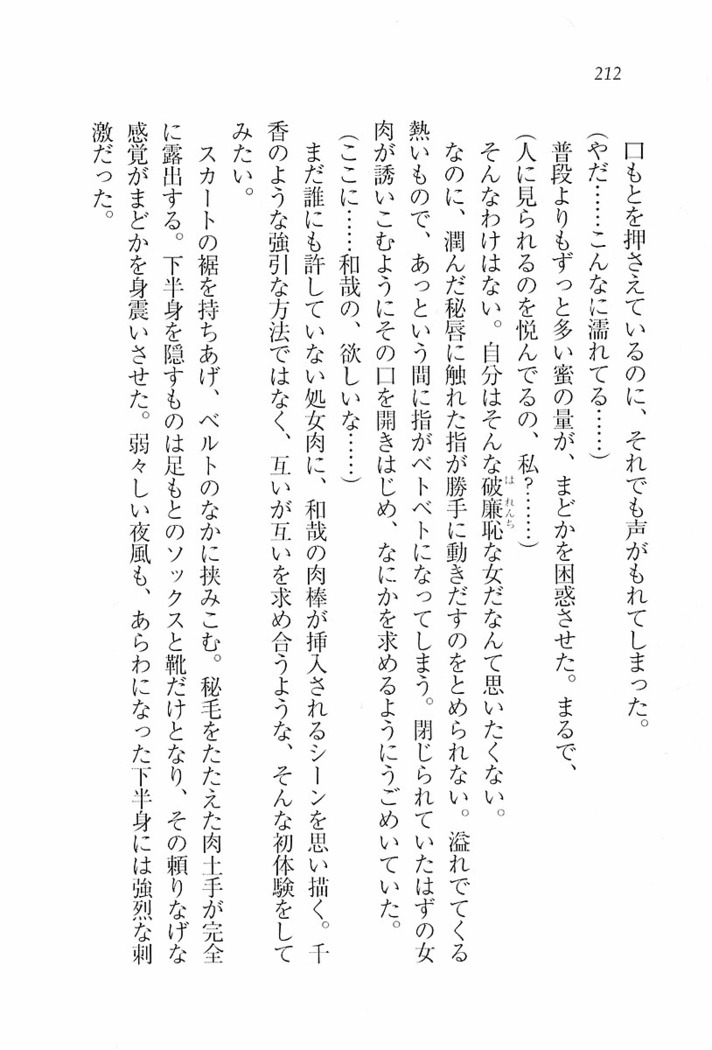 212
口もとを押さえているのに、それでも声がもれてしまった。
(やだ……こんなに濡れてる……)
普段よりもずっと多い蜜の量が、まどかを困惑させた。まるで、
(人に見られるのを悦んでるの、私?……)
そんなわけはない。自分はそんな破廉恥な女だなんて思いたくない。
なのに、潤んだ秘唇に触れた指が勝手に動きだすのをとめられない。溢れでてくる
熱いもので、あっという間に指がベトベトになってしまう。閉じられていたはずの女
肉が誘いこむようにその口を開きはじめ、なにかを求めるようにうごめいていた。
(ここに……和哉の、欲しいな……)
まだ誰にも許していない処女肉に、和哉の肉棒が挿入されるシーンを思い描く。千
香のような強引な方法ではなく、互いが互いを求め合うような、そんな初体験をして
みたい。
スカートの裾を持ちあげ、ベルトのなかに挟みこむ。秘毛をたたえた肉土手が完全
に露出する。下半身を隠すものは足もとのソックスと靴だけとなり、その頼りなげな
感覚がまどかを身震いさせた。弱々しい夜風も、あらわになった下半身には強烈な刺
激だった。